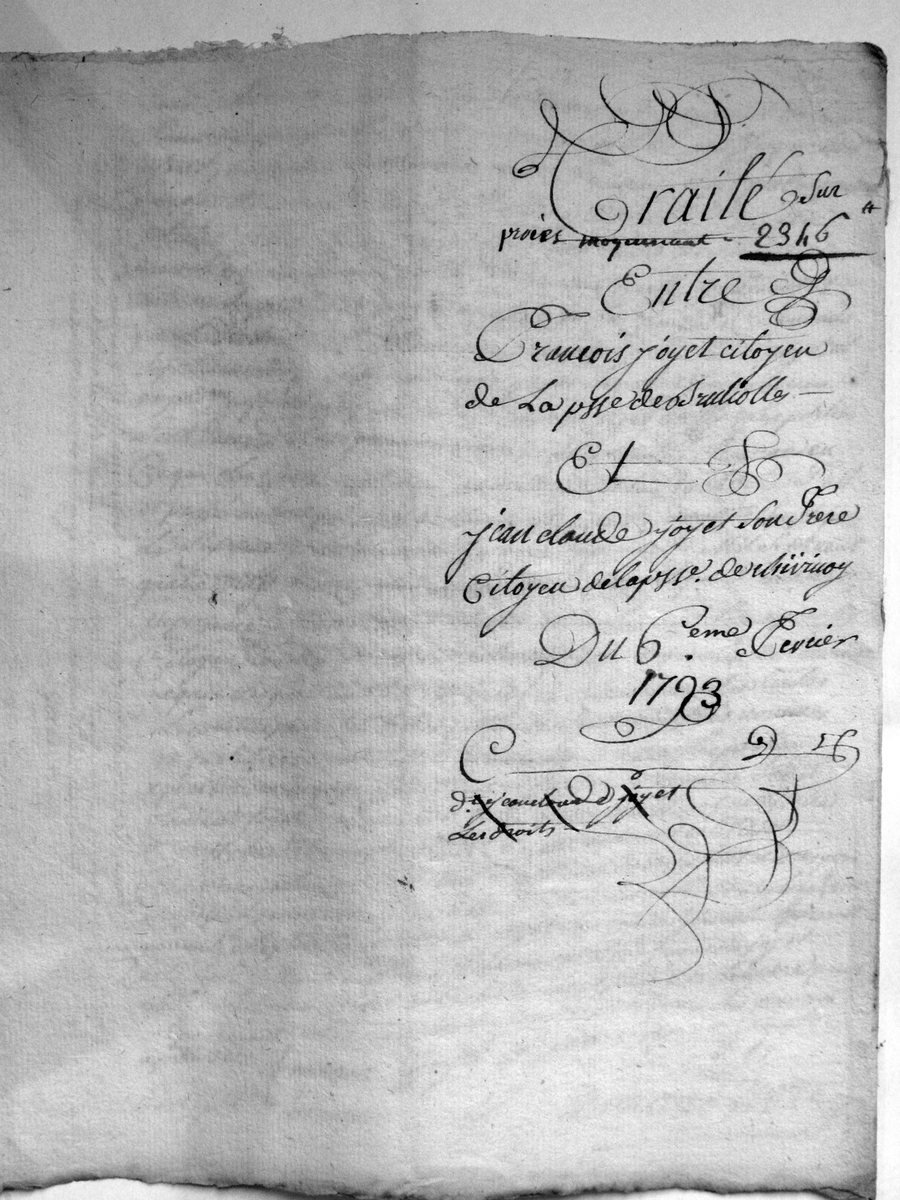 Traité sur
procès moyennant 2346 ₶
Entre
Francois joyet citoyen
de La psse de Brullolles
Et
jean claude joyet son frere
Citoyen de la psse. de chivinay
Du 6.eme Fevrier
1793
joyet
Les droits